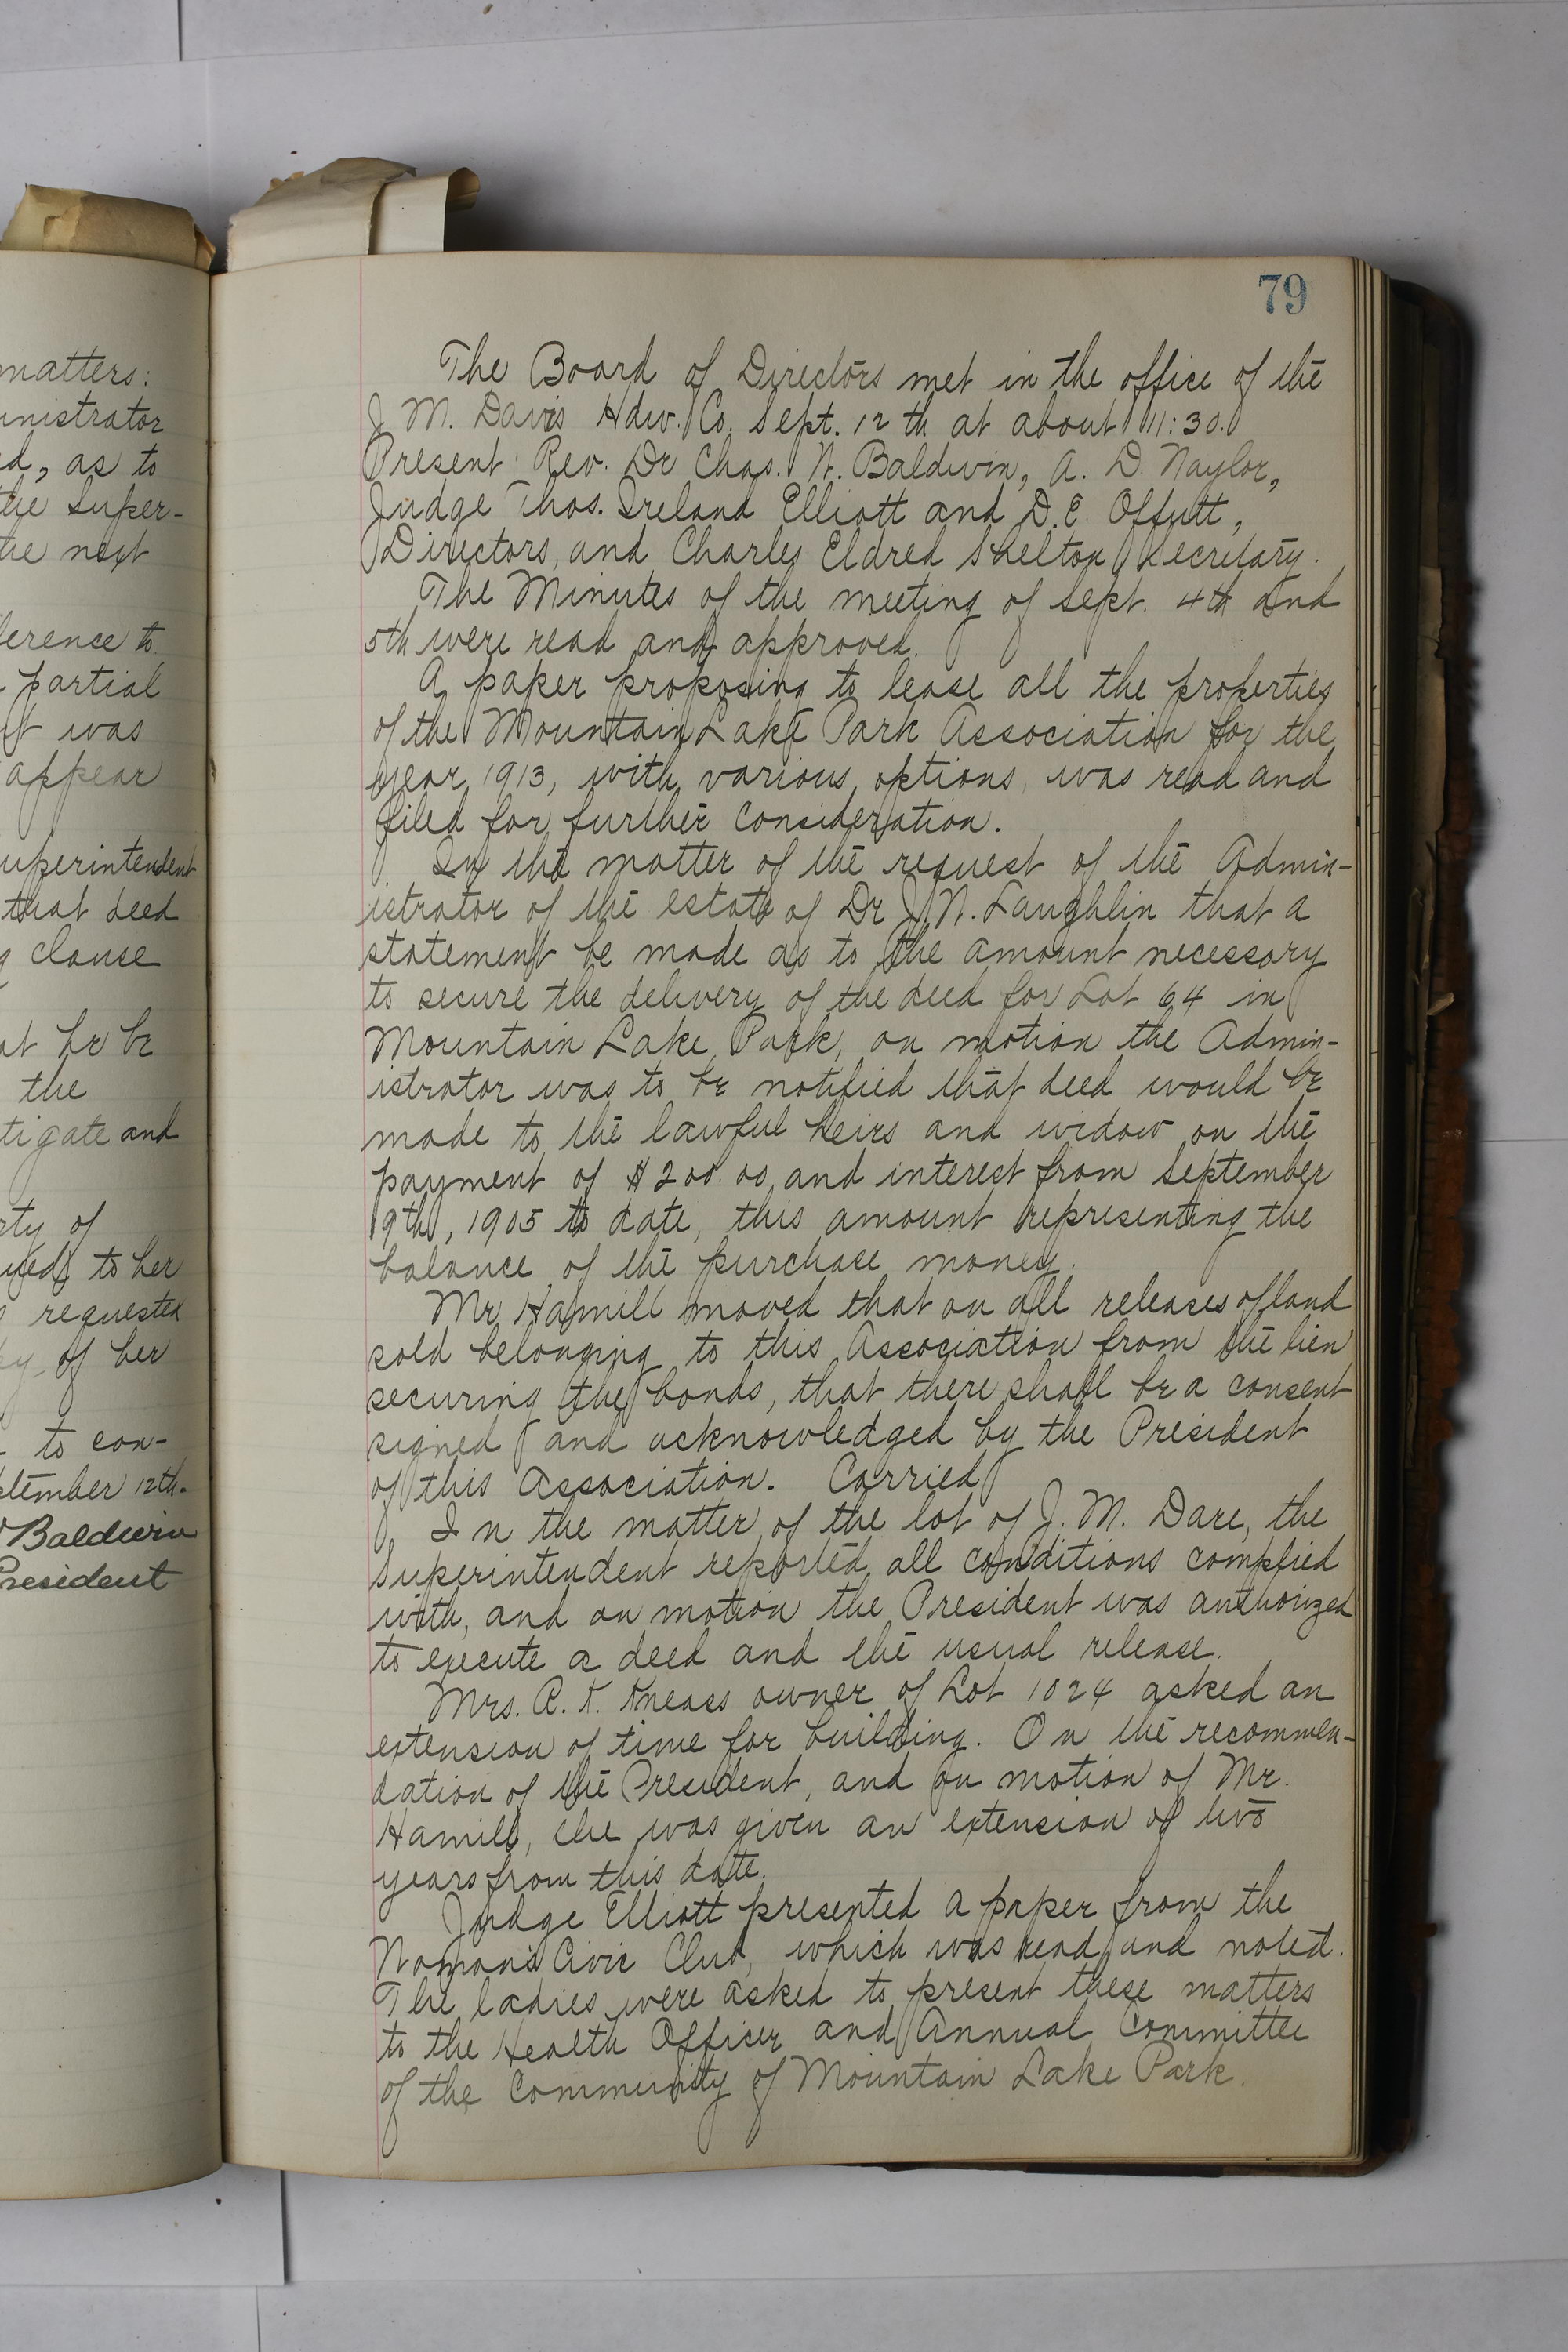 matters:
inistrator
ed, as to
the Super-
the next
ference to
partial
it was
appear
uperintendent
that deed
g clause
at he be
the
tigate and
rty of
yed to her
s requested
of her
to con-
ptember 12th.
Baldwin
President
79
The Board of Directors met in the office of the
J M. Davis Hdw. Co. Sept. 12th at about 11:30.
Present Rev. Dr Chas. W. Baldwin, A. D. Naylor,
Judge Thos. Ireland Elliott and D. E. Offutt,
Directors, and Charles Eldred Shelton Secretary.
The Minutes of the meeting of Sept. 4th and
5th were read and approved.
A paper proposing to lease all the properties
of the Mountain Lake Park Association for the
year 1913, with various options, was read and
filed for further consideration.
In the matter of the request of the Admin-
istrator of the estate of Dr J. N. Laughlin that a
statement be made as to the amount necessary
to secure the delivery of the deed for Lot 64 in
Mountain Lake Park, on motion the Admin-
istrator was to be notified that deed would be
made to the lawful heirs and widow on the
payment of $200.00 and interest from September
19th, 1905 to date, this amount representing the
balance of the purchase money.
Mr Hamill moved that on all releases of land
sold belonging to this Association from the lien
securing the bonds, that there shall be a consent
signed and acknowledged by the President
of this Association. Carried
In the matter of the lot of J. M. Dare, the
Superintendent reported all conditions complied
with, and on motion the President was authorized
to execute a deed and the usual release.
Mrs. R. K. Kneass owner of Lot 1024 asked an
extension of time for building. On the recommen-
dation of the President, and on motion of Mr.
Hamill, she was given an extension of two
years from this date.
Judge Elliott presented a paper from the
Woman's Civic Club, which was read and noted.
The ladies were asked to present these matters
to the Health Officer and Annual Committee
of the Community of Mountain Lake Park.